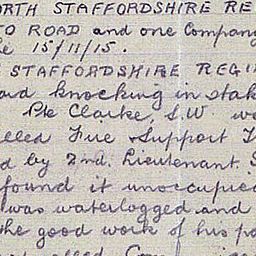 ORTH STAFFORDSHIRE RE
TO ROAD and one Company
15/11/15.
STAFFORDSHIRE REGI
knocking in stak
Pte Clarke, S.W. w
elled Fire Support T
d by 2nd. Lieutenant S
found it unoccupie
was waterlogged and
he good work of his pa